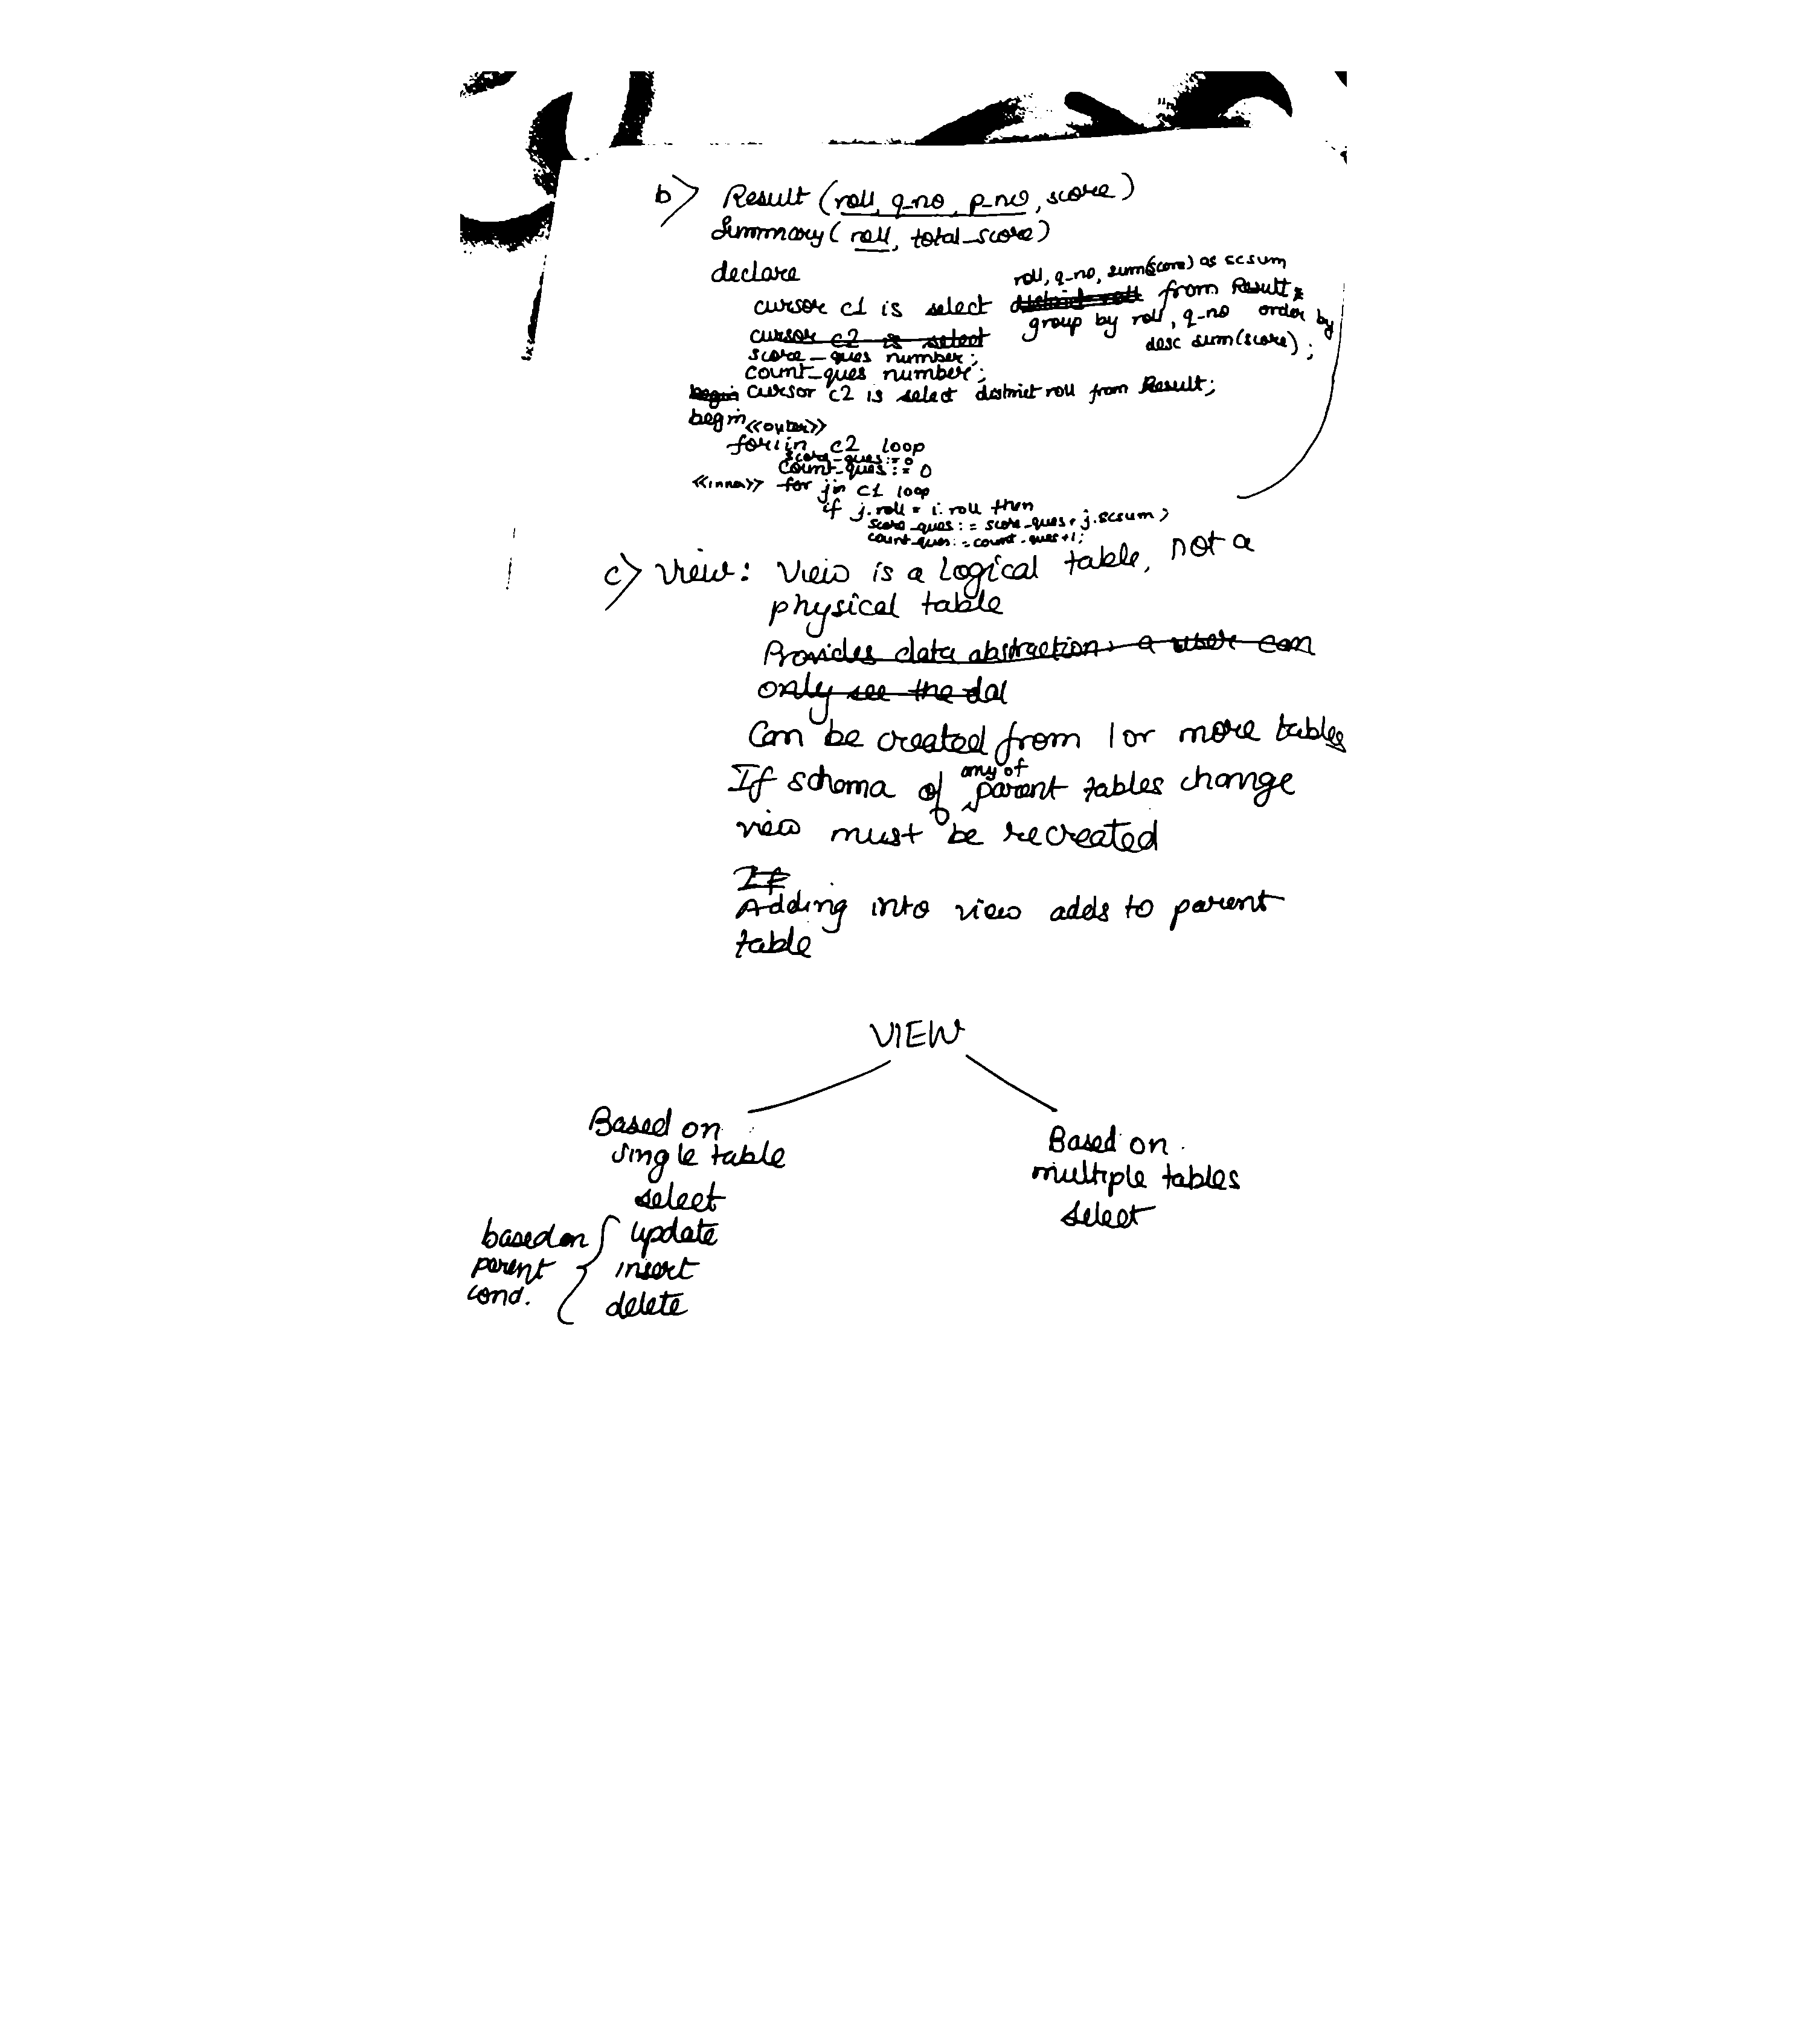 b) Result (roll, q_no, p_no, score)
Summary (roll, total_score)
declare
roll, q_no, sum(score) as scsum
cursor c1 is select distinct roll from Result;
group by roll, q_no order by
desc sum(score);
cursor c2 is select
score_ques number;
count_ques number;
begin cursor c2 is select distinct roll from Result;
begin <<outer>>
for i in c2 loop
score_ques := 0
count_ques := 0
<<inner>> for j in c1 loop
if j.roll = i.roll then
score_ques := score_ques + j.scsum;
count_ques := count_ques + 1;
c) View: View is a logical table, not a
physical table
Provides data abstraction, a user can
only see the dat
Can be created from 1 or more tables
any of
If schema of parent tables change
view must be recreated
If
Adding into view adds to parent
table
VIEW
Based on
single table
select
update
insert
delete
based on
parent
cond.
Based on
multiple tables
select